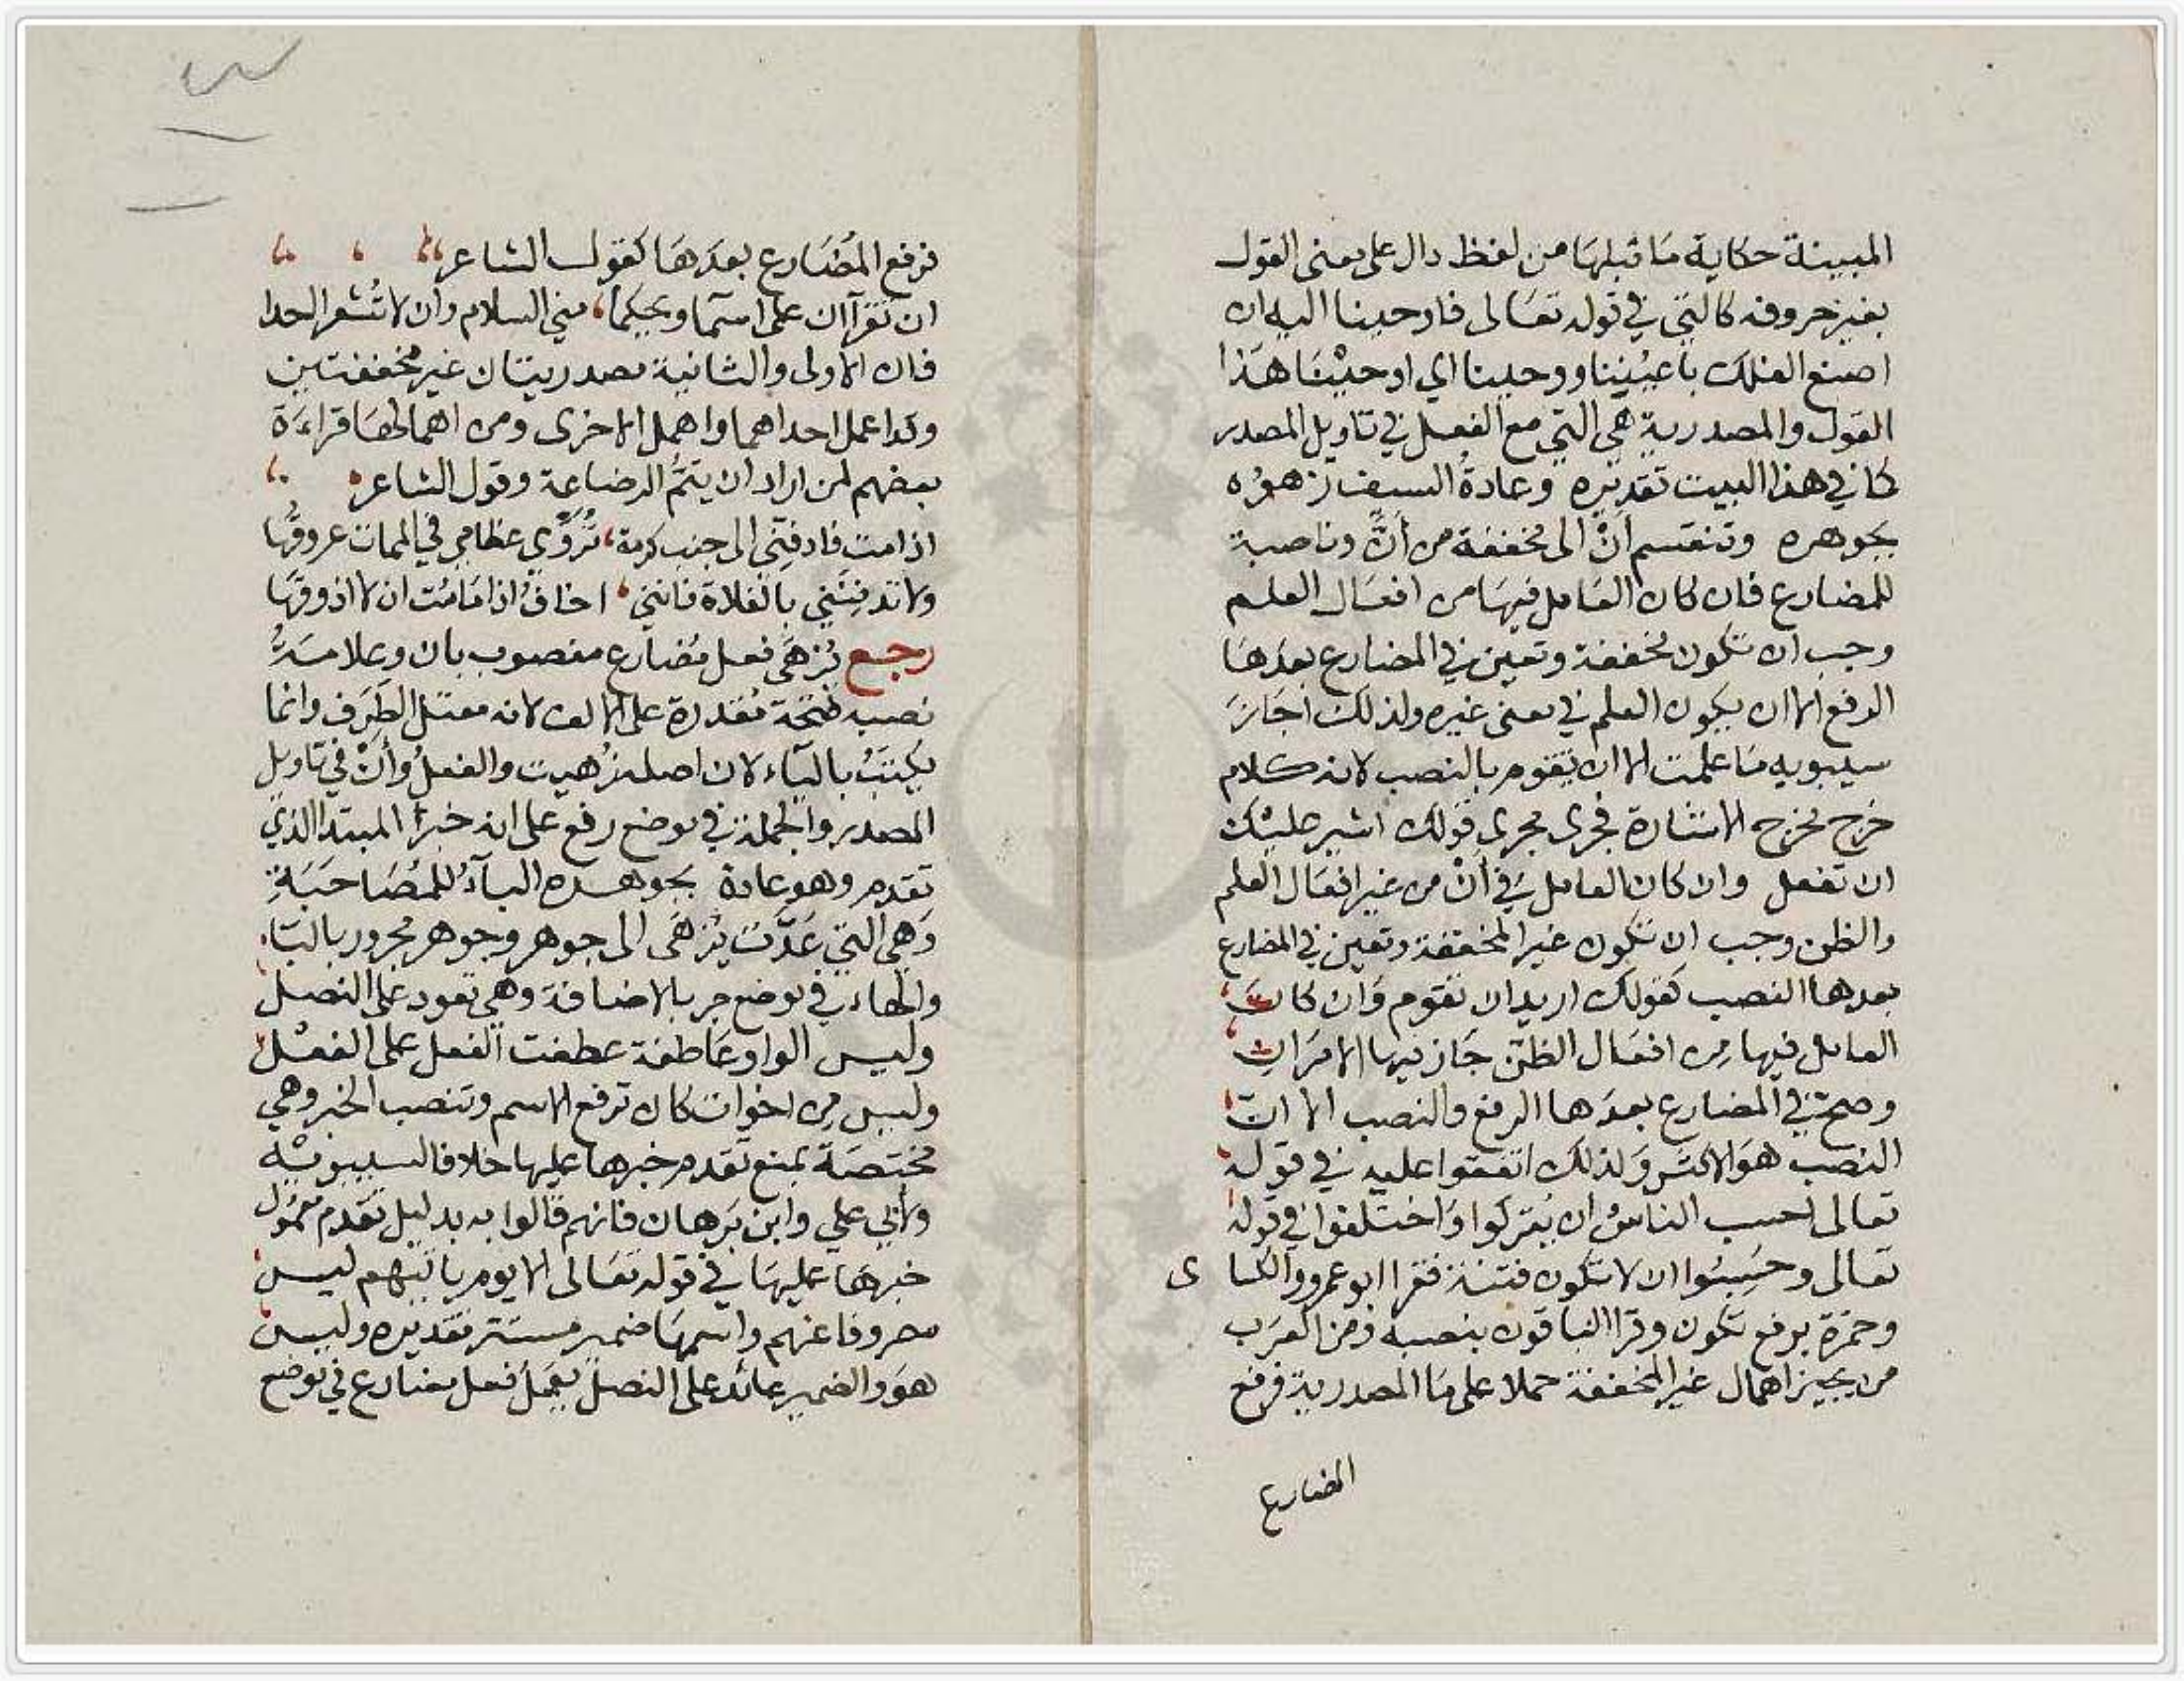 المبينة حكاية مَا قبلهَا من لفظ دال على معنى القول
بغير حروفه كالتي في قوله تعَالى فاوحينا اليه ان
اصنع الفلك باعيُنِنا ووحينا اي اوحيْنَا هَذا
القول والمصدرية هي التي مع الفعل في تاويل المصدر
كما في هذا البيت تقديره وعادةُ السيف زهوُه
بجوهره وتنقسم اَنْ الى مخففة من أنَّ وناصبة
للمضارع فان كان العَامل فيهَا من افعَال العلم
وجب ان تكون مخففة وتعين في المضارع بعدهَا
الرفع الا ان يكون العلم في معنى غيره ولذلك اجَازَ
سيبويه مَا علمت الا ان يقوم بالنصب لانه كلام
خرج مخرج الاشارة فجرى مجرى قولك اشير عليك
ان تفعل وان كان العامل في أنْ من غير افعَال العلم
والظن وجب ان تكون غير المخففة وتعين في المضارع
بعدها النصب كقولك اريد ان تقوم وَان كان
العامل فيها مِن افعَال الظن جَاز فيها الامرَان
وصح في المضارع بعدَها الرفع والنصب الا ان
النصب هوَ الاكثر وَلذلك اتفقوا عليه في قوله
تعالى احسب الناسُ ان يُتركوا وَاختلفوا في قوله
تعالى وحَسِبُوا ان لا تكون فتنة فقرا ابو عمرو والكسا ى
وحمزة برفع تكون وقرا الباقون بنصبه ومن العرَب
من يجيز اهمال غير المخففة حملا على مَا المصدرية فرفع
المضارع
فرفع المُضَارع بعدَهَا كقول الشاعر
ان تقرآان على اسمآ ويحكما مني السلام وان لا تُشعرا احدا
فان الاولى والثانية مصدريتان غير مخففتين
وقد اعمل احداهما واهمل الاخرى ومن اهمالهَا قراءَة
بعضهم لمن اراد ان يتمُّ الرضاعة وقول الشاعر
اذا مت فادفنّي الى جنب كرمة تُرَوِّي عظامي في الممات عروقُها
ولا تدفنَنِّي بالفلاة فانني اخافُ اذا مَا مُت ان لا اذوقهَا
رجع يُزهَى فعل مُضارع منصوب بان وعلامَةُ
نصبه فتحة مُقدرة على الالف لانه معتل الطرَف وانما
يكتبُ باليَاء لان اصله زُهيت والفعلُ وأنْ في تاويل
المصدر والجملة في موضع رفع على انه خبرُ المبتدا الذي
تقدم وهو عادة بجوهره البآءُ للمُصَاحَبَةِ
وَهي التي عَدَّت يُزهَى الى جوهر وجوهر مجرور باليَا
والهاء في موضع جر بالاضافة وهي تعود على النصل
وليس الواو عَاطفة عطفت الفعل على الفعْل
وليس مِن اخوات كان ترفع الاسم وتنصب الخبر وهي
مختصَة بمنع تقدم خبرها عليها خلافا لسيبويْه
ولأبي علي وابن بَرهان فانهم قالوا به بدليل تقدم معمُول
خبرهَا عليهَا في قوله تعَالى الا يوم ياتيهم ليس
مصروفا عنهم واسمهَا ضمير مستتر تقديره وليس
هوَ والضمير عائد على النصل يعمَلُ فعل مضارع في موضع